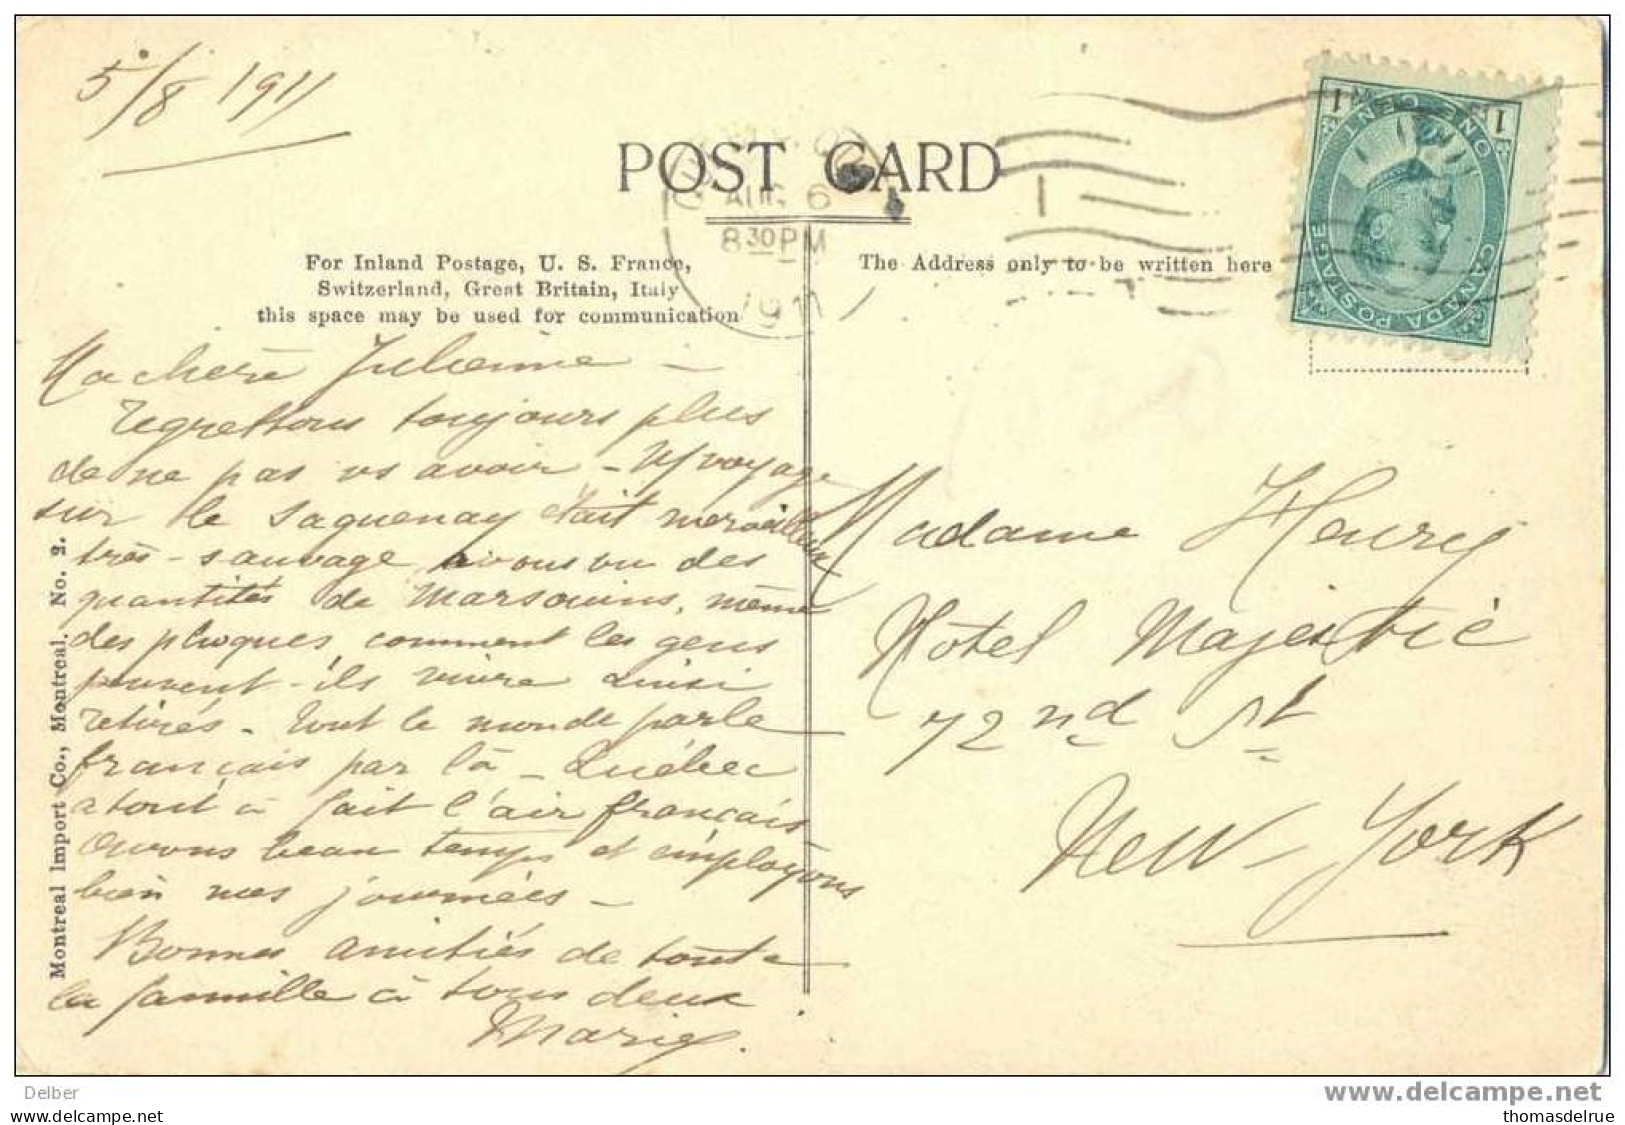 5/8 1911
POST CARD
AUG 6
8 30 PM
1911
For Inland Postage, U. S. France,
Switzerland, Great Britain, Italy
this space may be used for communication
The Address only to be written here
CANADA POSTAGE
ONE CENT
1 1
Ma chère Julienne -
regrettons toujours plus
de ne pas vs avoir - voyage
sur le Saguenay était merveilleux
très - sauvage avons vu des
quantités de marsouins, même
des phoques, comment les gens
peuvent - ils vivre ainsi
retirés - tout le monde parle
français par là - Québec
a tout à fait l'air français
avons beau temps et employons
bien nos journées -
Bonnes amitiés de toute
la famille à tous deux
Marie.
Madame Henry
Hôtel Majestic
72nd St
New-York
Montreal Import Co., Montreal. No. 2.
Delber
delcampe.net
picclick.com
thomasdelrue